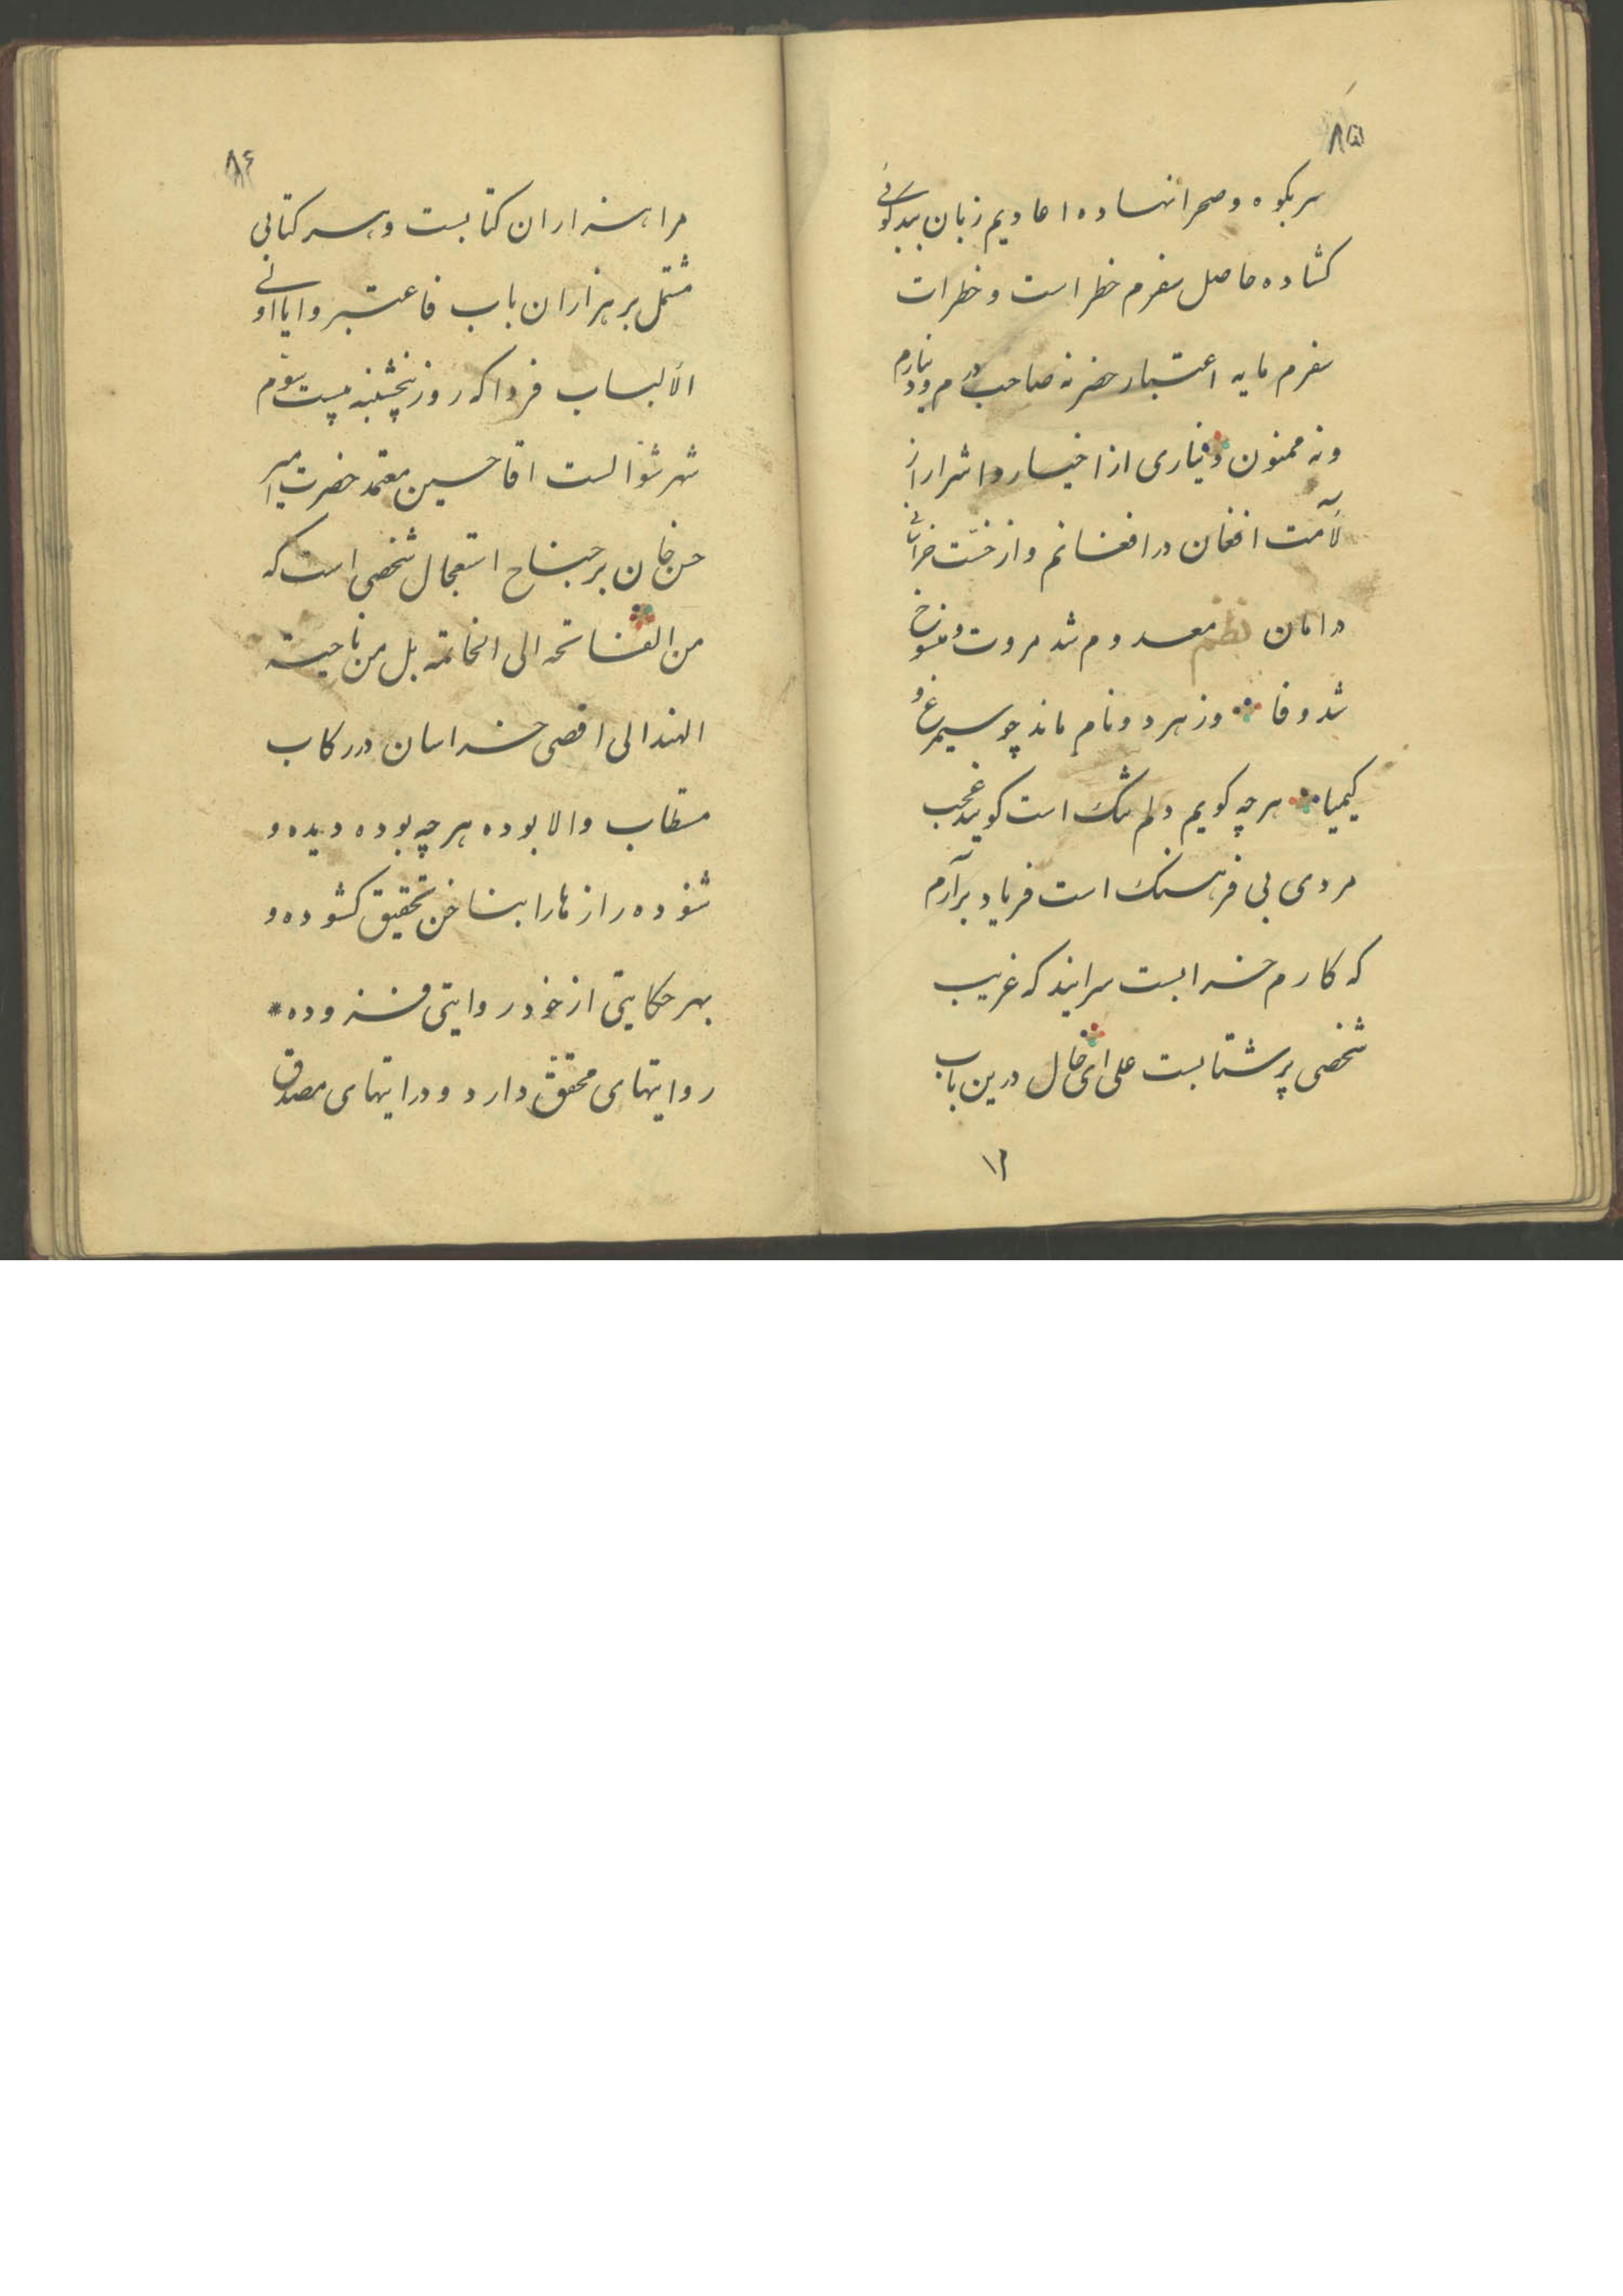 ۸۵
سر بکوه و صحرا نهاده اعادیم زبان ببدکوئی
کشاده حاصل سفرم خطر است و خطرات
سفرم مایه اعتبار حضر نه صاحب درم و دینارم
و نه ممنون دیاری از اخیار و اشرار از
لآمت افغان در افغانم و از خست
در امان نظم معدوم شد مروت و منسوخ
شد وفا وز هر دو نام ماند چو سیمرغ و
کیمیا هرچه کویم دلم تنک است کویند عجب
مردی بی فرهنک است فریاد برآرم
که کارم خرابست سرایند که غریب
شخصی پرشتابست علی ای حال درین باب
۸۶
مرا هزاران کتابست و هر کتابی
مشتمل بر هزاران باب فاعتبروا یا اولی
الألباب فردا که روز پنجشنبه بیست سوم
شهر شوالست اقا حسین معتمد حضرت امیر
حسن خان بر جناح استعجال شخصی است که
من الفاتحه الی الخاتمه بل من ناحیته
الهند الی اقصی خراسان در رکاب
مستطاب والا بوده هرچه بوده دیده و
شنوده رازها را بناخن تحقیق کشوده و
بهر حکایتی از خود روایتی فزوده *
روایتهای محقق دارد و درایتهای مصدق